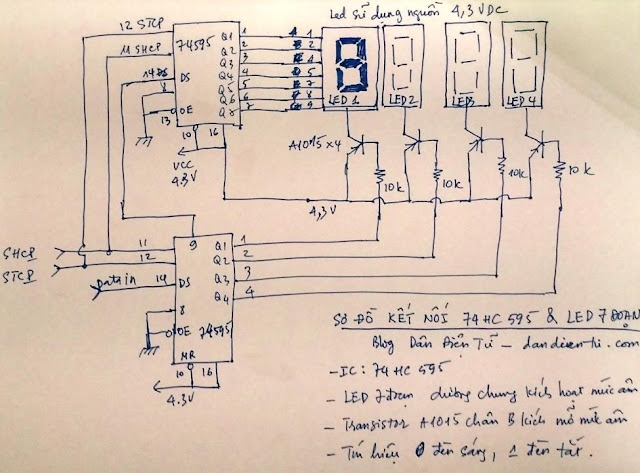 Led sử dụng nguồn 4,3 VDC
12 STCP
11 SHCP
14 DS
74595
DS
8
OE
13
10
16
Q1 1
Q2 2
Q3 3
Q4 4
Q5 5
Q6 6
Q7 7
LED 1
LED 2
LED3
LED 4
VCC
4.3V
A1015 x 4
10k
10k
10k
10k
4,3V
SHCP
STCP
Data in
11
12
14
9
DS
8
OE
74595
MR
10
16
4.3V
Q1
Q2
Q3
Q4
1
2
3
4
SƠ ĐỒ KẾT NỐI 74HC595 & LED 7 ĐOẠN
Blog Dân Điện Tử - dandientu.com
- IC: 74 HC 595
- LED 7 đoạn dương chung kích hoạt mức âm
- Transistor A1015 chân B kích mở mức âm
- Tín hiệu 0 đèn sáng, 1 đèn tắt.